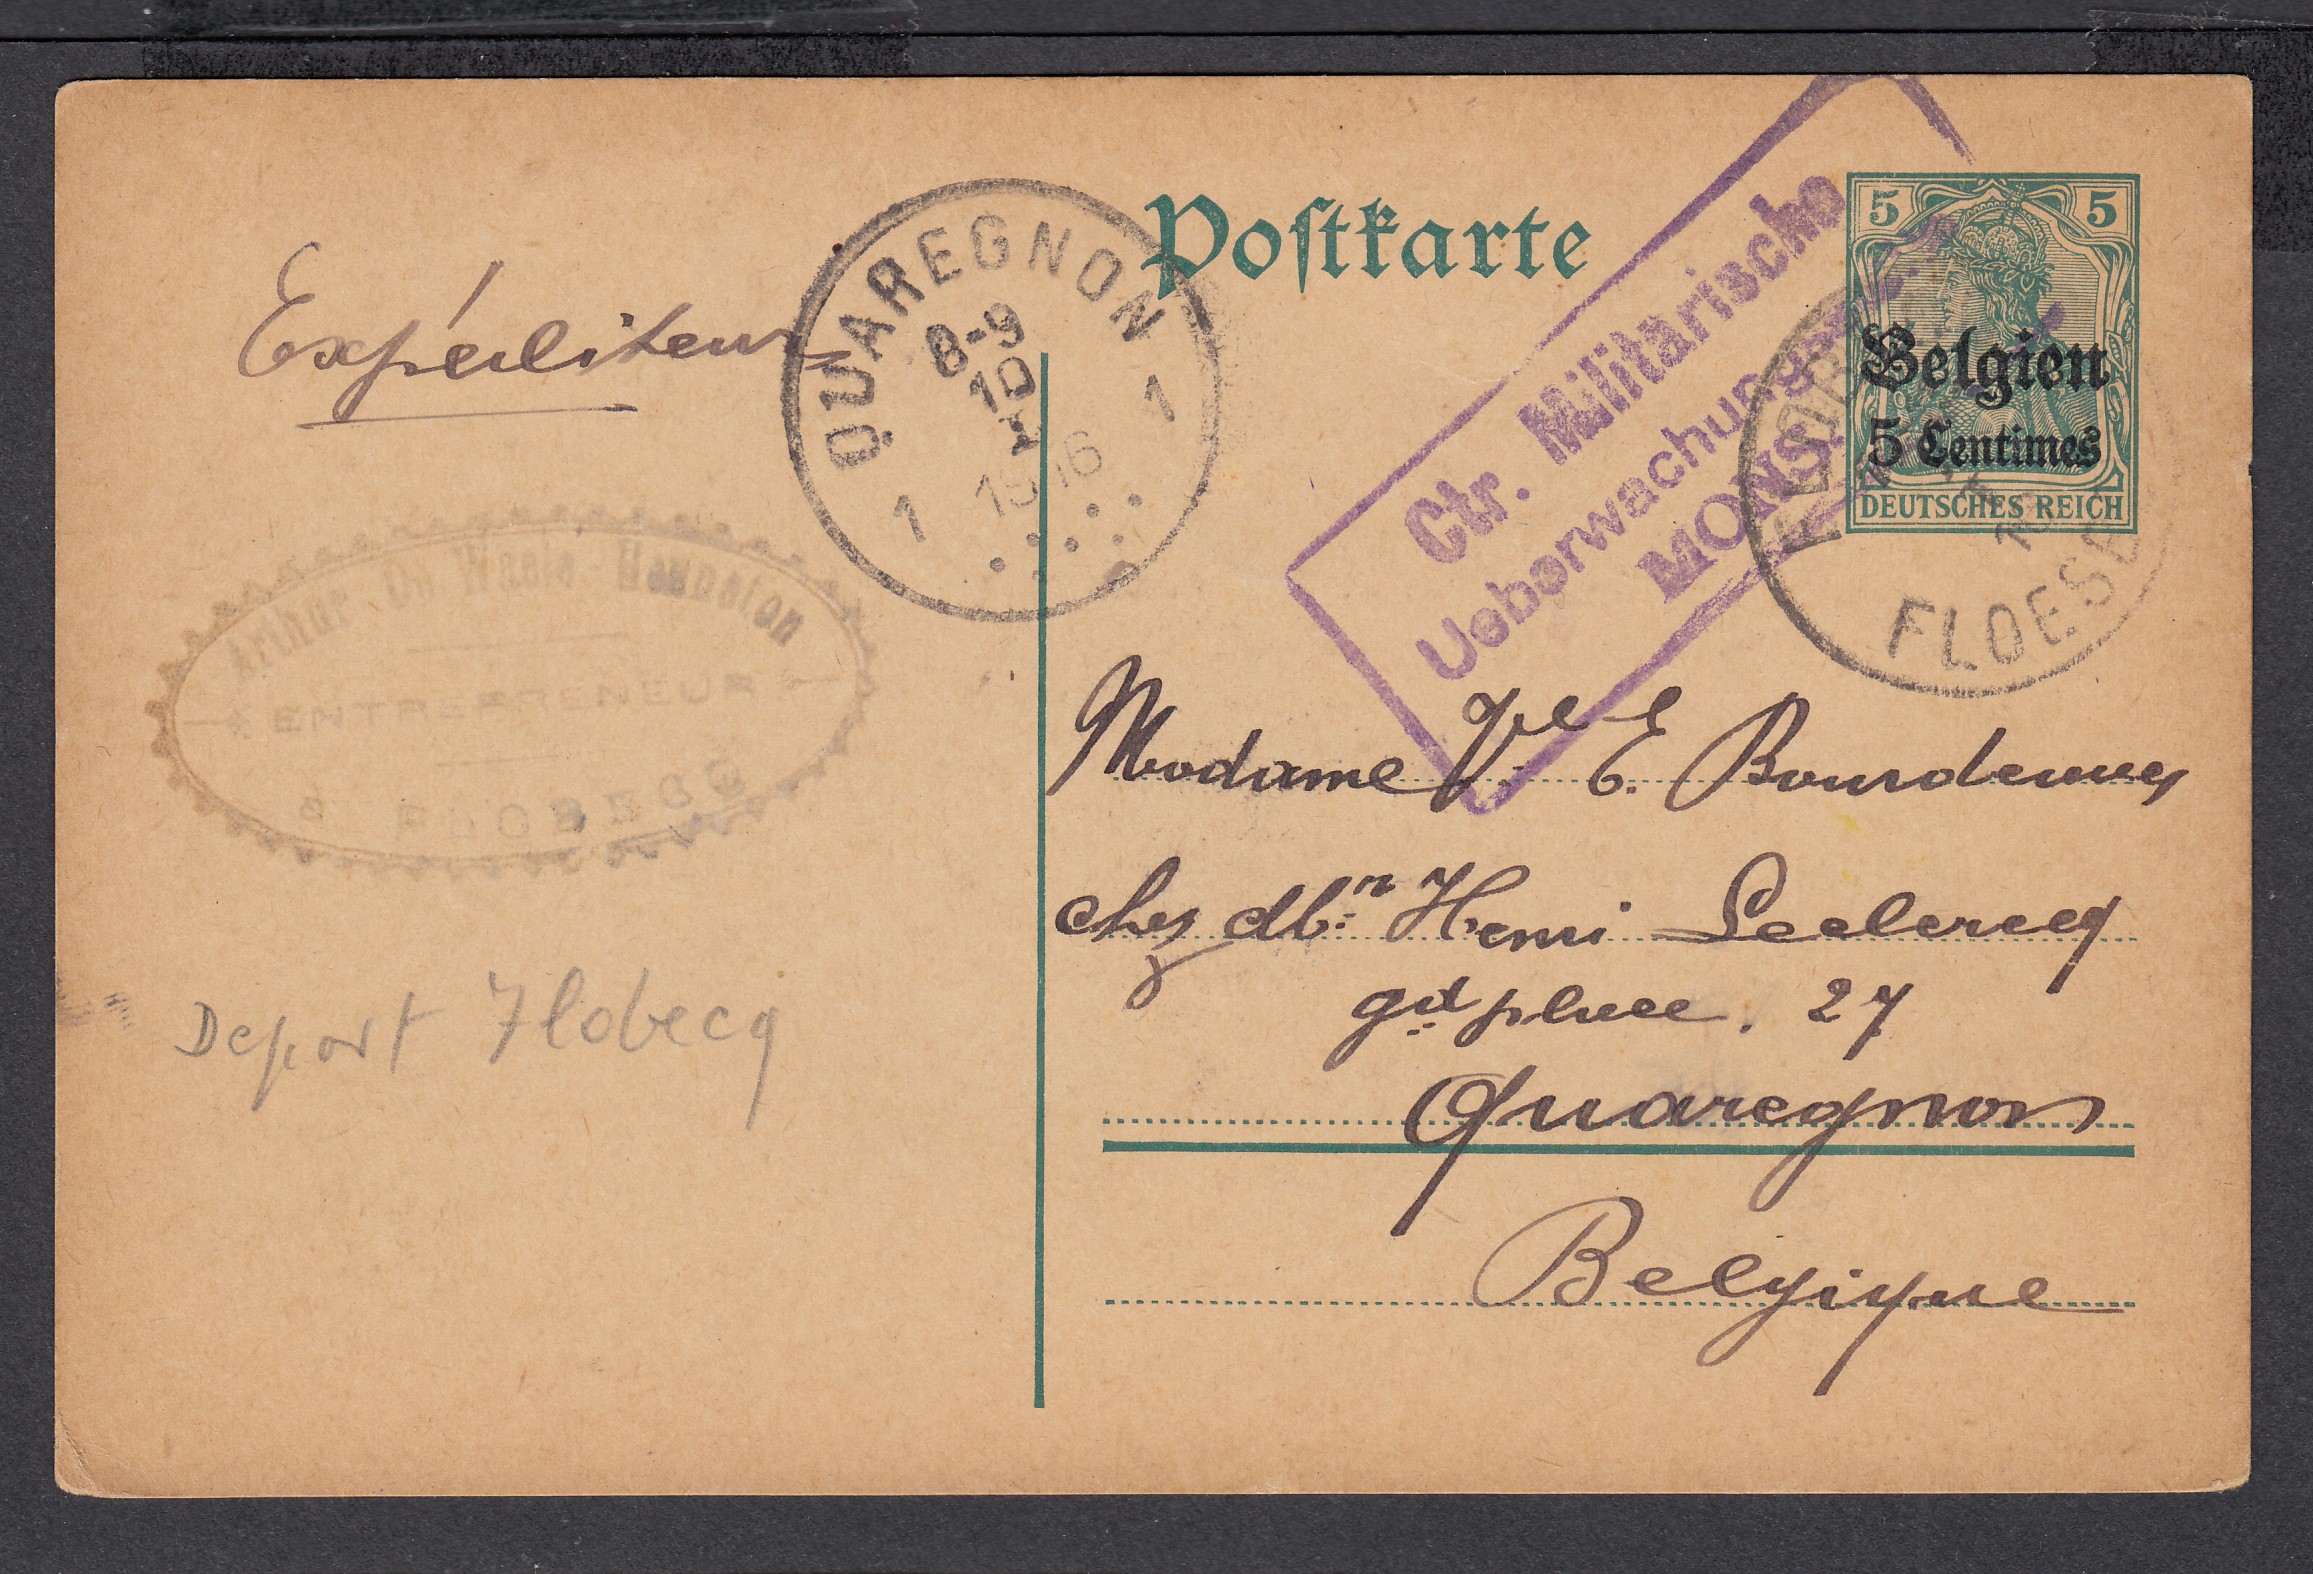 Postkarte
5 5
Belgien
5 Centimes
DEUTSCHES REICH
Ctr. Militärische
Ueberwachungs
MONS
QUAREGNON
8-9
10
I
1 1916 1
FLOBECQ
FLOESB
Expéditeur
Arthur De Waele
ENTREPRENEUR
à FLOBECQ
Deport Flobecq
Madame Vve E.
chez Mr Henri Leclercq
gd place, 27
Quaregnon
Belgique